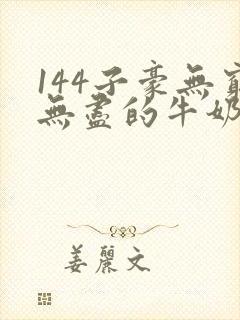 144子豪無窮
無盡的牛奶
姜麗文